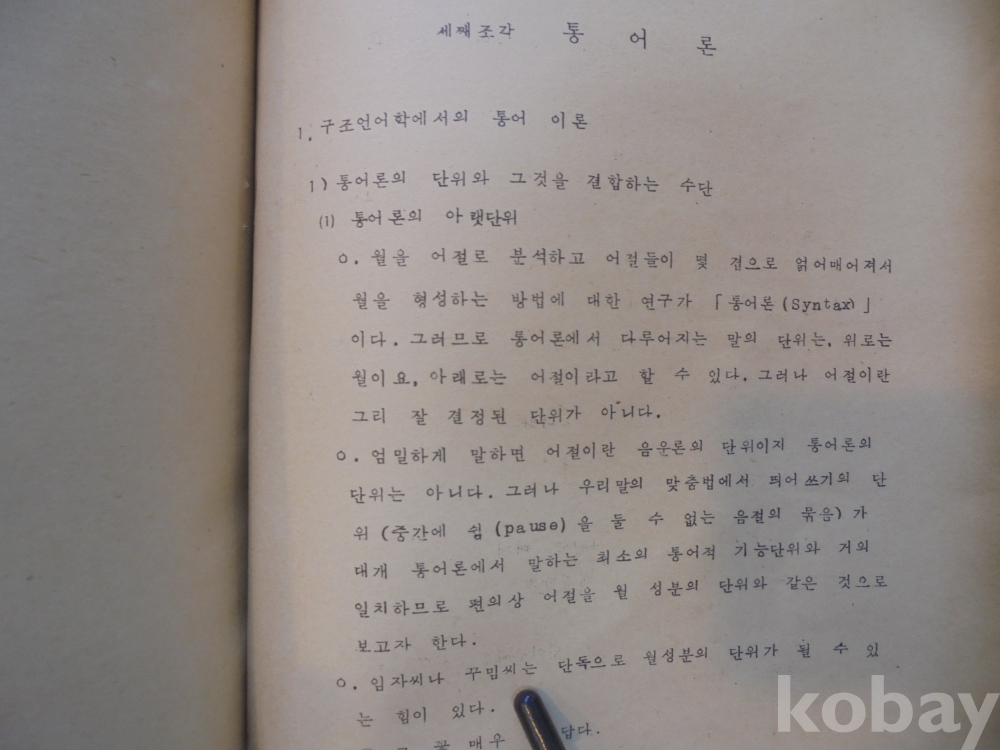 세째조각 통 어 론
1. 구조언어학에서의 통어 이론
1) 통어론의 단위와 그것을 결합하는 수단
(1) 통어론의 아랫단위
ㅇ. 월을 어절로 분석하고 어절들이 몇 겹으로 얽어매어져서
월을 형성하는 방법에 대한 연구가 「통어론(Syntax)」
이다. 그러므로 통어론에서 다루어지는 말의 단위는, 위로는
월이요, 아래로는 어절이라고 할 수 있다. 그러나 어절이란
그리 잘 결정된 단위가 아니다.
ㅇ. 엄밀하게 말하면 어절이란 음운론의 단위이지 통어론의
단위는 아니다. 그러나 우리말의 맞춤법에서 띄어쓰기의 단
위 (중간에 쉼 (pause) 을 둘 수 없는 음절의 묶음) 가
대개 통어론에서 말하는 최소의 통어적 기능단위와 거의
일치하므로 편의상 어절을 월 성분의 단위와 같은 것으로
보고자 한다.
ㅇ. 임자씨나 꾸밈씨는 단독으로 월성분의 단위가 될 수 있
는 힘이 있다.
꽃 매우 답다.
kobay